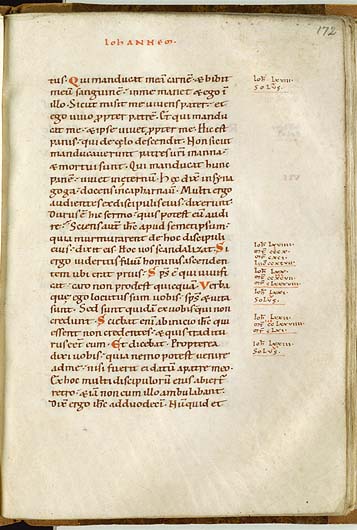 172
IOhANNEM
tus. Qui manducat meā carnē & bibit
meū sanguinē. inme manet & ego in
illo. Sicut misit me vivens pater. et
ego vivo ꝓpter patrē. Et qui mandu
cat me. & ipse vivet ꝓpter me. Hic est
panis. qui de celo descendit. Non sicut
manducaverunt patres urī manna.
& mortui sunt. Qui manducat hunc
panē. vivet in eternū. Hec dix̄ insyna
goga. docens incapharnaū. Multi ergo
audientes exdiscipulis eius. dixerunt.
Durus ē hic sermo. quis potest eū audi
re. Sciens autē ihc̄ apud semetipsum.
quia murmurarent de hoc discipuli
eius. dixit eis. Hoc vos scandalizat. Si
ergo videritis filiū hominis ascenden
tem ubi erat prius. Sp̄s ē qui vivifi
cat. caro non prodest quicquā. Verba
que ego locutus sum vobis. sp̄s & vita
sunt. Sed sunt quidā ex vobis qui non
credunt. Sciebat enī ab inicio ihc̄ qui
essent non credentes. & quis tradicu
rus ēet eum. Et dicebat. Propterea
dixi vobis. quia nemo potest venire
adme. nisi fuerit ei datū apatre meo.
Ex hoc multi discipulorū eius abierī
retro. & iā non cum illo ambulabant.
Dix̄ ergo ihc̄ adduodecī. Nūquid et
Ioh̄ LXXIII.
SOLUS.
SOLUS.
SOLUS.